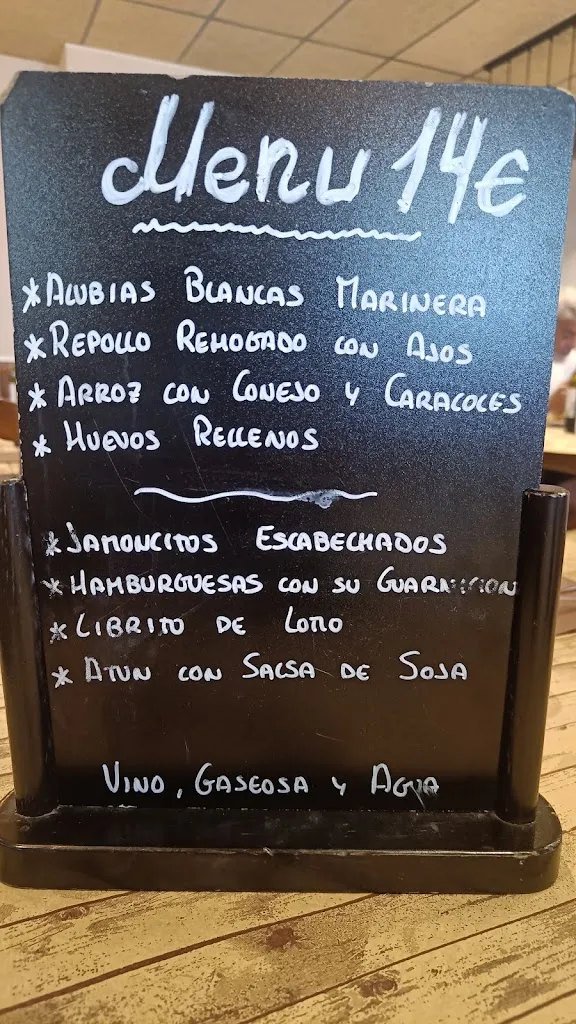 Menu 14€
* ALUBIAS BLANCAS MARINERA
* REPOLLO REHOGADO CON AJOS
* ARROZ CON CONEJO Y CARACOLES
* HUEVOS RELLENOS
* JAMONCITOS ESCABECHADOS
* HAMBURGUESAS CON SU GUARNICION
* LIBRITO DE LOMO
* ATUN CON SALSA DE SOJA
VINO, GASEOSA Y AGUA